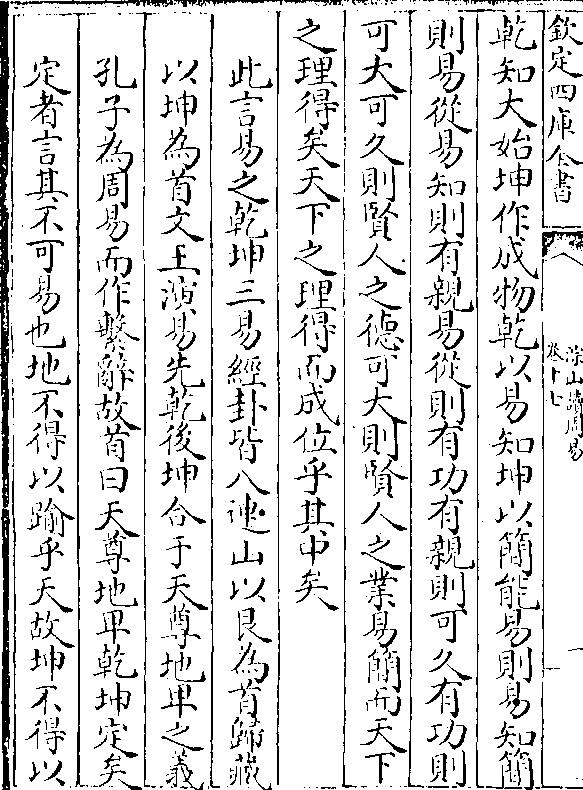 欽定四庫全書
深山讀周易
卷十七
一
乾知大始坤作成物乾以易知坤以簡能易則易知簡
則易從易知則有親易從則有功有親則可久有功則
可大可久則賢人之德可大則賢人之業易簡而天下
之理得矣天下之理得而成位乎其中矣
此言易之乾坤三易經卦皆八連山以艮為首歸藏
以坤為首文王演易先乾後坤合于天尊地卑之義
孔子為周易而作繫辭故首曰天尊地卑乾坤定矣
定者言其不可易也地不得以踰乎天故坤不得以